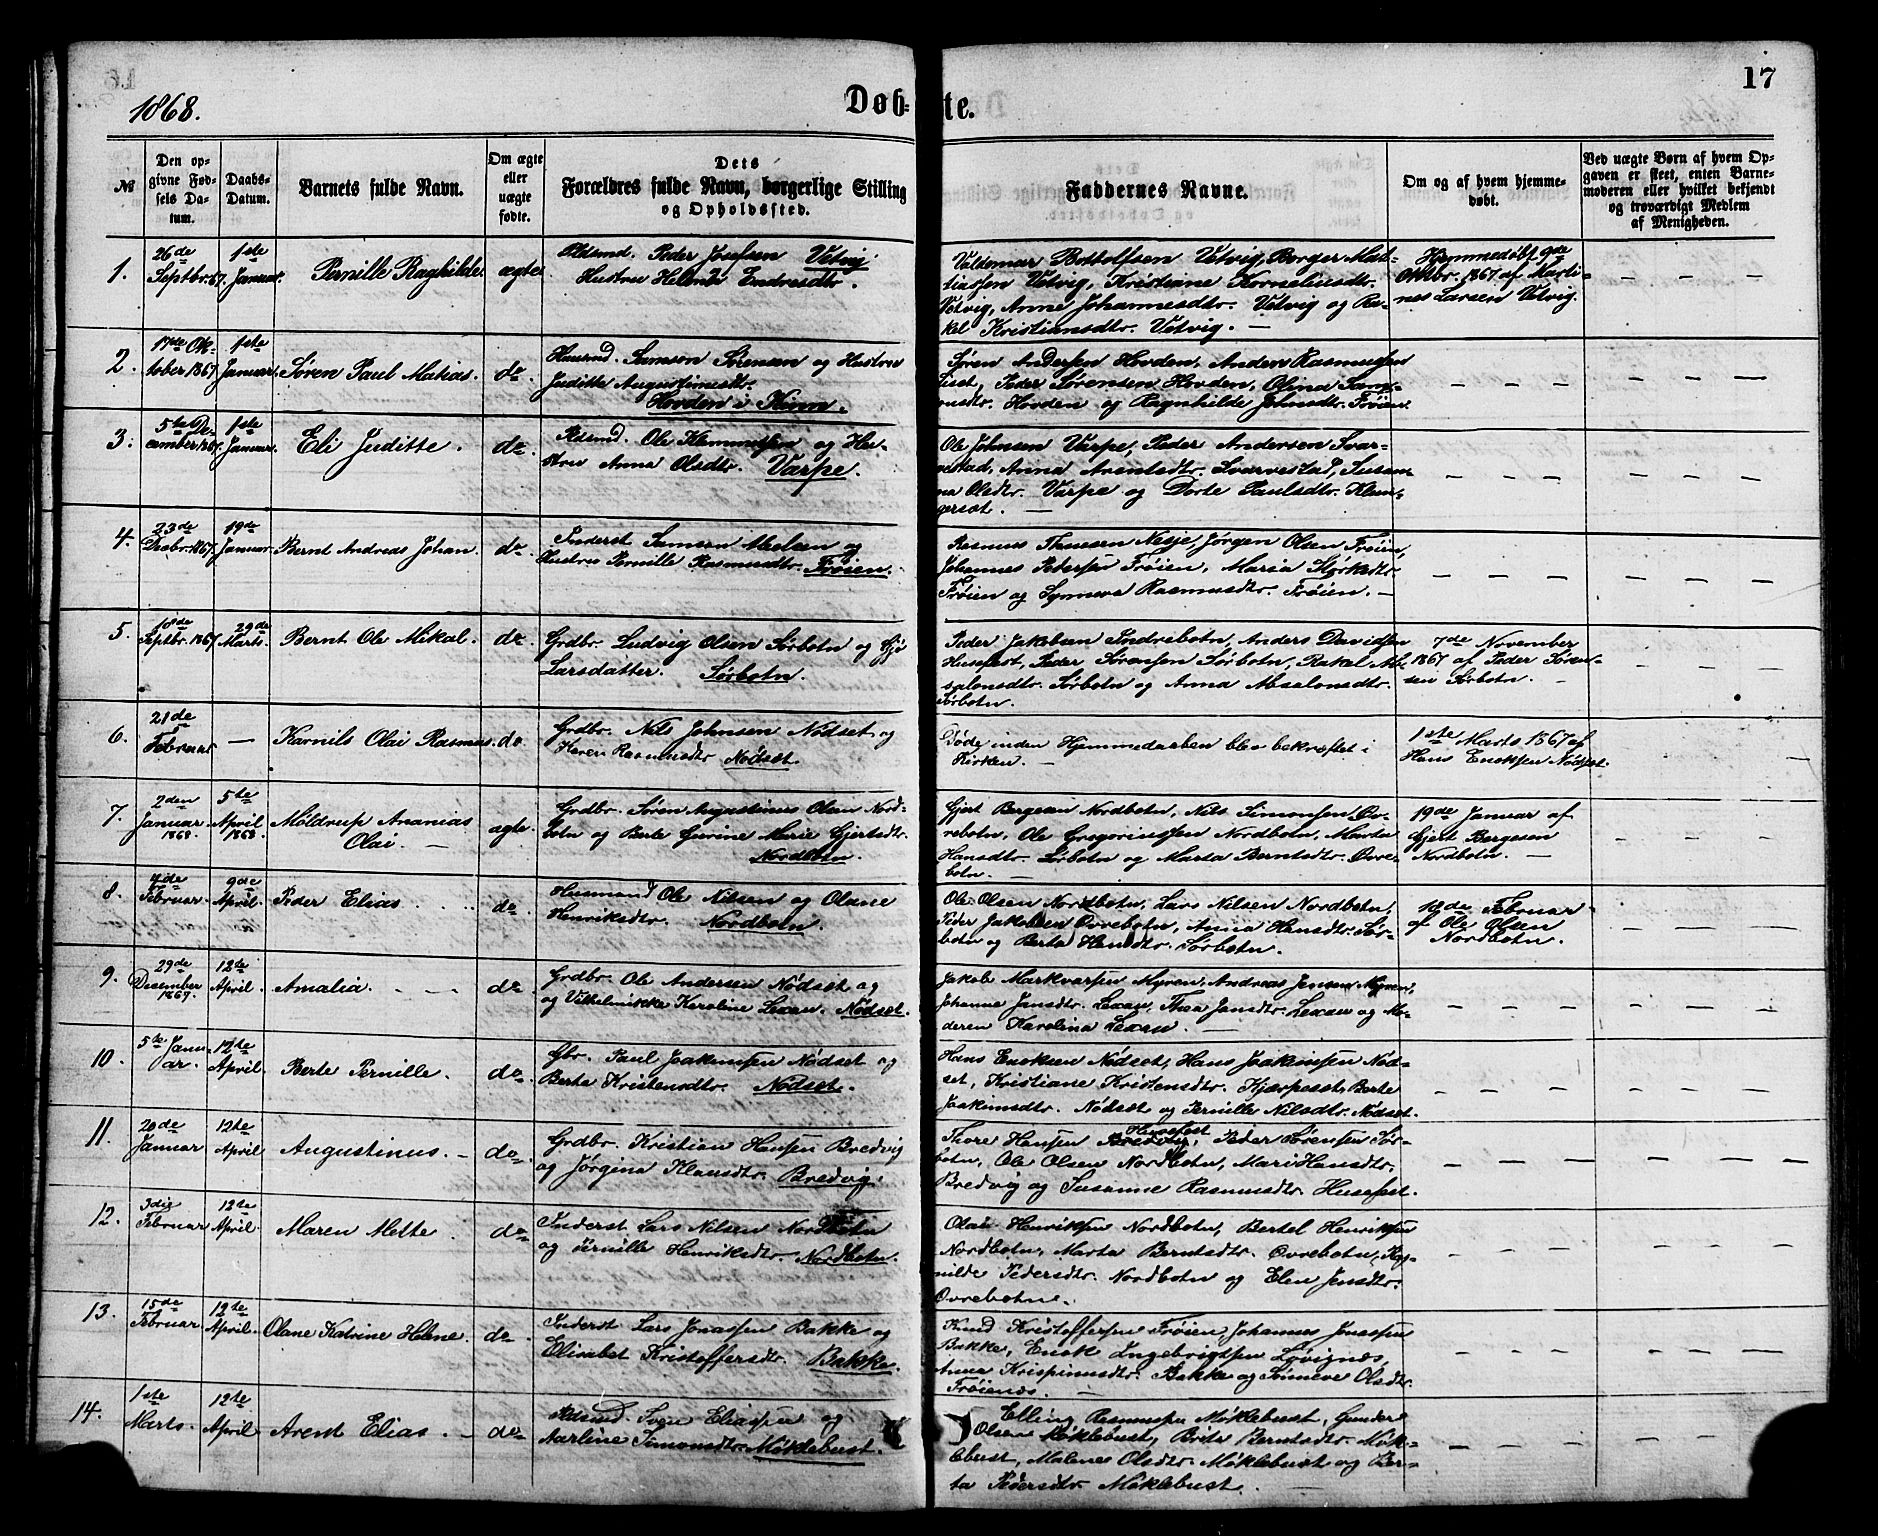 1868.
Døb-te.
17
№
Den opgivne Fødsels Datum.
Daabs-Datum.
Barnets fulde Navn.
Om ægte eller uægte fødte.
Dets Forældres fulde Navn, borgerlige Stilling og Opholdssted.
Faddernes Navne.
Om og af hvem hjemmedøbt.
Ved uægte Børn af hvem Opgaven er skeet, enten Barnemoderen eller hvilket bekjendt og troværdigt Medlem af Menigheden.
1.
26de
Septbr. 67.
1ste
Januar.
Pernille Raghilde
ægte
Pldsmd. Peder Josefsen Vetvig
Hustru Helene Endresdtr.
Valdemar Bottolfsen Vetvig, Borger Mat-
tiassen Vetvig, Kristiane Korneliusdtr.
Vetvig, Anne Johannesdtr. Vetvig og Ra-
kel Kristiansdtr. Vetvig. —
Hjemmedøbt 9de
Oktbr. 1867 af Marti-
nes Larsen Vetvig.
2.
17de Ok-
tober 1867
1ste
Januar.
Søren Paul Matias.
do.
Husmd. Samson Sørensen og Hustru
Juditte Augustinusdtr.
Hovden i Kinn.
Søren Andersen Hovden, Anders Rasmussen
Liset, Peder Sørensen Hovden, Olina Sam-
sonsdtr. Hovden og Ragnhilde Johnsdtr. Frøien.
3.
5te De-
cember 1867.
1ste
Januar.
Eli Juditte.
do.
Pldsmd. Ole Klemmetsen og Hu-
stru Anna Olsdtr. Varpe.
Ole Johnsen Varpe, Peder Andersen Svar-
vestad, Anna Arentsdtr. Svarvestad, Susan-
na Olsdtr. Varpe og Dorte Paulsdtr. Klun-
gersæt. —
4.
23de
Decbr. 1867.
19de
Januar.
Bernt Andreas Johan.
do.
Inderst Samson Nielsen og
Hustru Pernille Rasmusdtr. Frøien.
Rasmus Thuesen Nesje, Jørgen Olsen Frøien,
Johannes Pedersen Frøien, Maria Størkesdtr.
Frøien og Synneva Rasmusdtr. Frøien. —
5.
18de
Septbr. 1867
29de
Marts.
Bernt Ole Mikal.
do.
Grdbr. Ludvig Olsen Sørbotn og
Larsdatter. Sørbotn.
Peder Jakobsen Indrebotn, Anders Davidsen
Husefest, Peder Sørensen Sørbotn, Rakal Ab-
salonsdtr. Sørbotn og Anna Absalonsdtr.
Sørbotn.
7de November
1867 af Peder Søren-
sen Sørbotn. —
6.
21de
Februar
—
Karnils Olai Rasmus.
do.
Grdbr. Nils Johnsen Nødset og
Maren Rasmusdtr Nødset.
Døde inden Hjemmedaaben blev bekræftet i
Kirken. —
1ste Marts 1867 af
Hans Enoksen Nødset.
7.
2den
Januar
1868
5te
April
1868
Møldrup Ananias
Olai. —
ægte.
Grdbr. Søren Augustinus Olsen Nord-
botn og Berte Gurine Marie Gjertsdtr.
Nordbotn.
Gjert Bergesen Nordbotn, Nils Simonsen Øv-
rebotn, Ole Gregoriussen Nordbotn, Marta
Hansdtr. Sørbotn og Marta Berntsdtr. Øvre-
botn. —
19de Januar af
Gjert Bergesen
Nordbotn. —
8.
4de
Februar.
9de
April.
Peder Elias.
do.
Husmand Ole Nilsen og Olane
Henriksdtr. Nordbotn.
Ole Olsen Nordbotn, Lars Nilsen Nordbotn,
Peder Jakobsen Øvrebotn, Anna Hansdtr. Sør-
botn og Berta Hansdtr. Sørbotn.
18de Februar
af Ole Olsen
Nordbotn.
9.
29de
December
1867.
12te
April.
Amalia.
do.
Grdbr. Ole Andersen Nødset og
og Vilhelmikke Karoline Lexau. Nødset.
Jakob Markvarsen Myren, Andreas Jensen Myren,
Johanne Jensdtr. Lexau, Thea Jansdtr. Lexau og Mo-
deren Karolina Lexau. —
10.
5te Janu-
ar.
12te
April
Berte Pernille.
do.
Gbr. Paul Joakimsen Nødset og
Berta Kristensdtr. Nødset.
Hans Enoksen Nødset, Hans Joakimsen Nød-
set, Kristiane Kristensdtr. Kjærpesæt, Berte
Joakimsdtr. Nødset og Pernille Nilsdtr. Nødset.
11.
20de
Januar
12te
April
Augustinus. —
do.
Grdbr. Kristian Hansen Bredvig
og Jørgina Klausdtr. Bredvig.
Thore Hansen Husefest, Peder Sørensen Sør-
botn, Ole Olsen Nordbotn, Mari Hansdtr.
Bredvig og Susanne Rasmusdtr. Husefest.
12.
3die
Februar
12te
April
Maren Mette.
do.
Inderst Lars Nilsen Nordbotn
og Pernille Henriksdtr. Nordbotn.
Olai Henriksen Nordbotn, Bertel Henriksen
Nordbotn, Marta Berntsdtr. Øvrebotn, Rag-
nilde Pedersdtr. Nordbotn og Elen Jensdtr.
Øvrebotn.
13.
15de
Februar
12te
April.
Olane Katrine Helene.
do.
Inderst Lars Jonassen Bakke og
Elisabet Kristoffersdtr. Bakke.
Knud Kristoffersen Frøien, Johannes Jonassen
Bakke, Enok Ingebrigtsen Løvignæs,
Anne Krispinusdtr. Bakke og Sønneve Olsdtr.
Frøienæs. —
14.
1ste
Marts.
12te
April
Arent Elias. —
do.
Pldsmd. Iver Eliassen og
Karline Simonsdtr. Møklebust.
Elling Rasmussen Møklebust, Gunder
Olsen Møklebust, Brite Berntsdtr. Møk-
lebust, Malene Olsdtr. Møklebust og Ber-
ta Pedersdtr Møklebust.